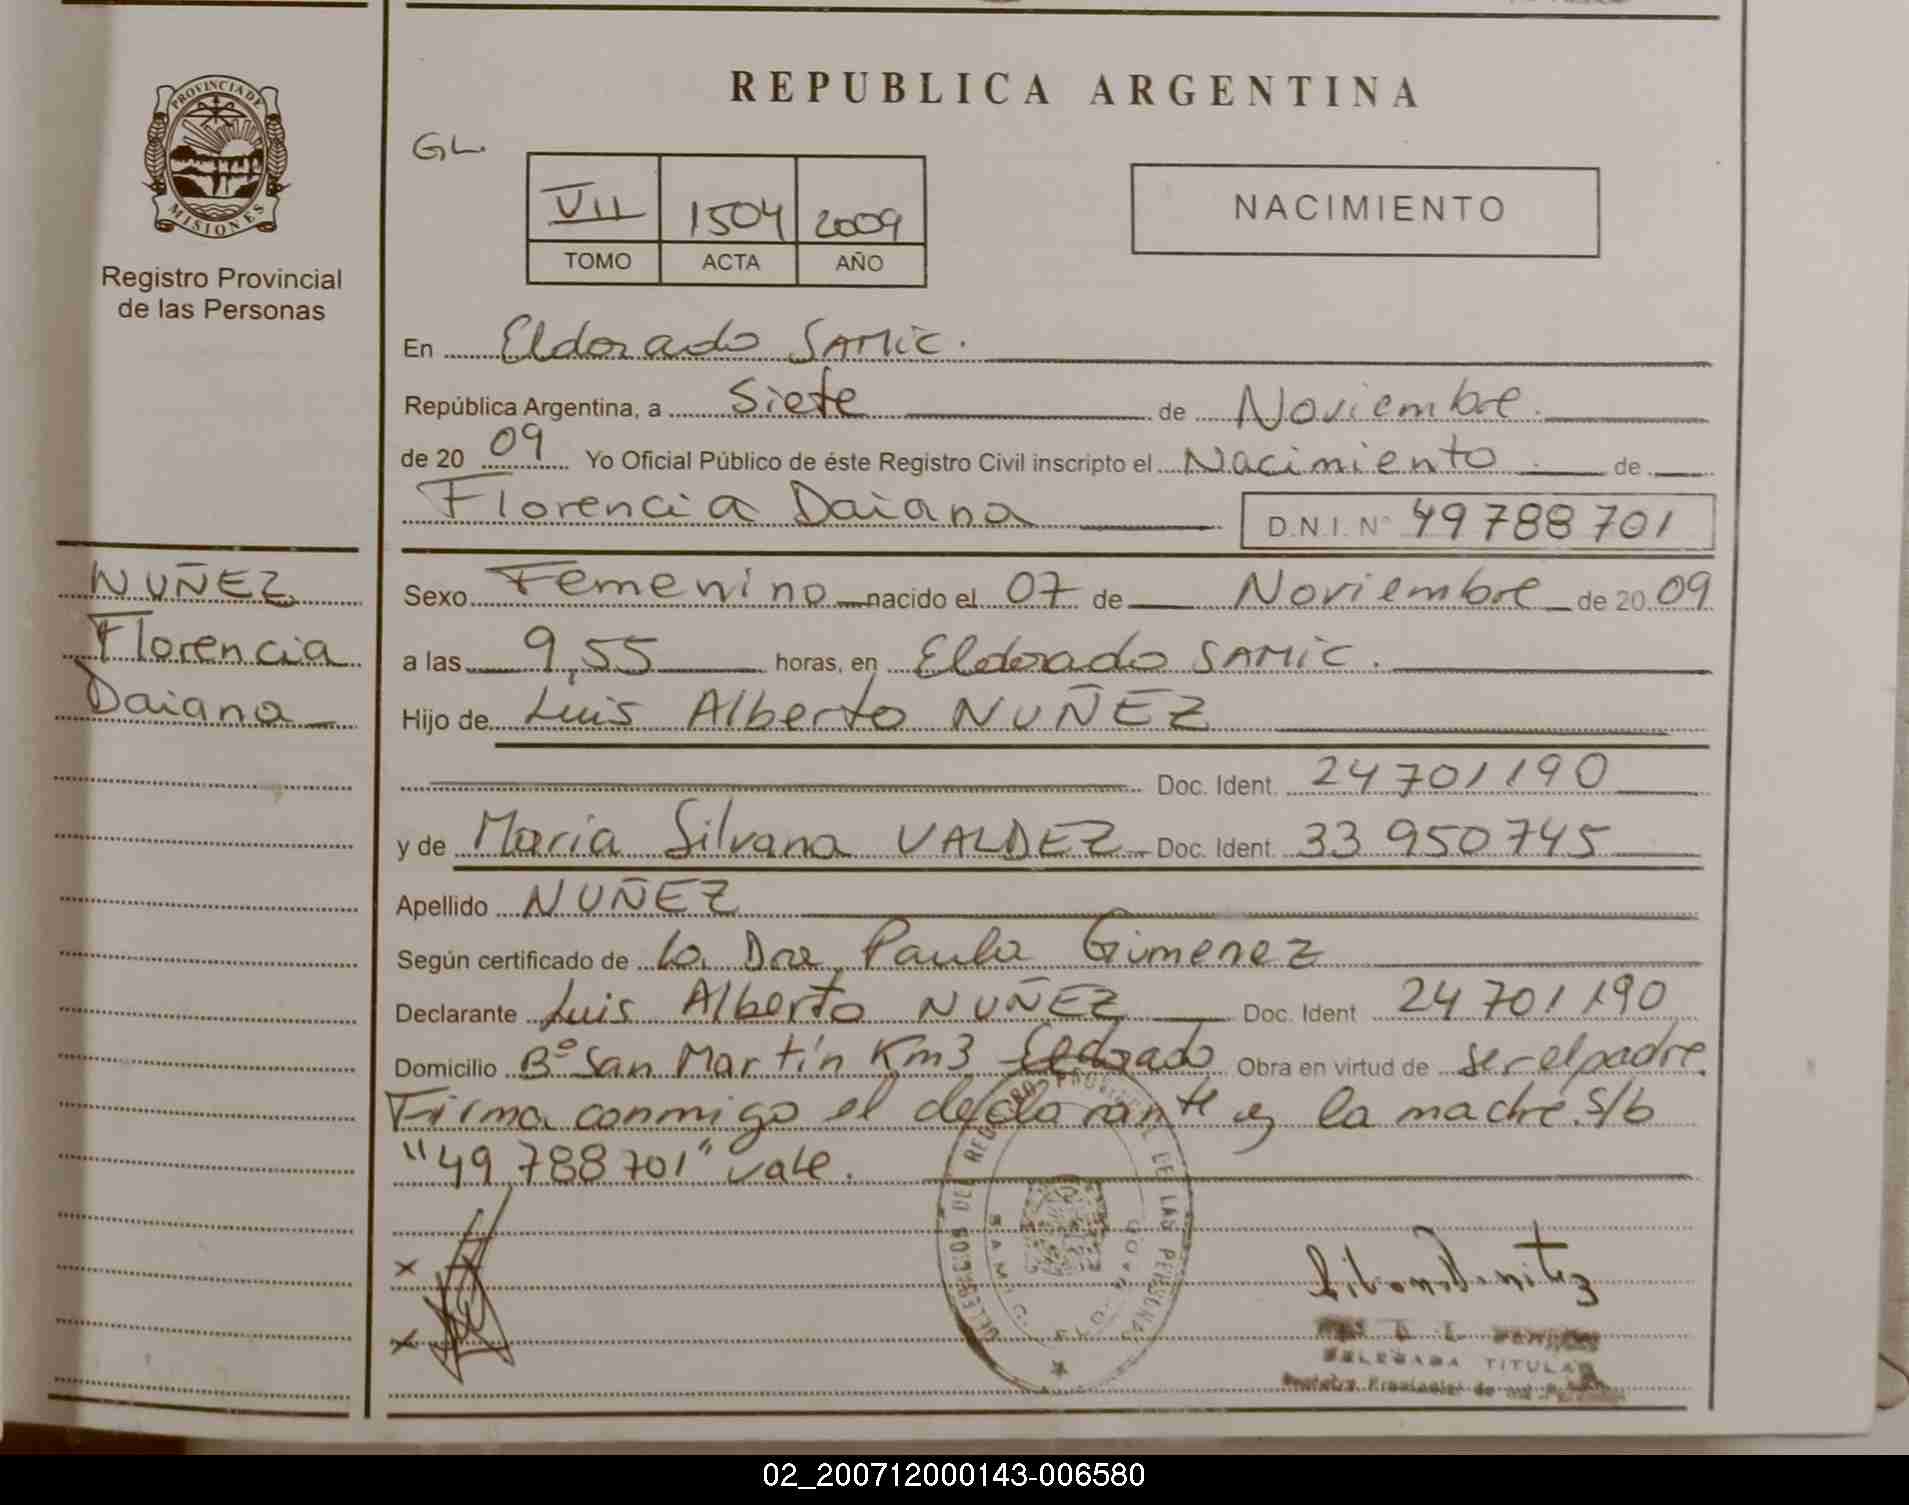 REPUBLICA ARGENTINA
PROVINCIA DE
MISIONES
Registro Provincial
de las Personas
GL.
VII 1504 2009
TOMO ACTA AÑO
NACIMIENTO
En Eldorado SAMIC.
República Argentina, a Siete de Noviembre.
de 20 09 Yo Oficial Público de éste Registro Civil inscripto el Nacimiento de
Florencia Daiana D.N.I. N° 49 788 701
NUÑEZ
Florencia
Daiana
Sexo Femenino nacido el 07 de Noviembre de 20 09
a las 9,55 horas, en Eldorado SAMIC.
Hijo de Luis Alberto NUÑEZ
Doc. Ident. 24 701 190
y de Maria Silvana VALDEZ Doc. Ident. 33 950 745
Apellido NUÑEZ
Según certificado de la Dra Paula Gimenez
Declarante Luis Alberto NUÑEZ Doc. Ident 24 701 190
Domicilio B° San Martín Km3 Eldorado Obra en virtud de ser el padre.
Firma conmigo el declarante y la madre. S/b
"49 788 701" vale.
x
x
DEL REGISTRO PROVINCIAL DE LAS PERSONAS
S.A.M.I.C.
DELEGADA TITULAR
Registro Provincial de las Personas
02_200712000143-006580